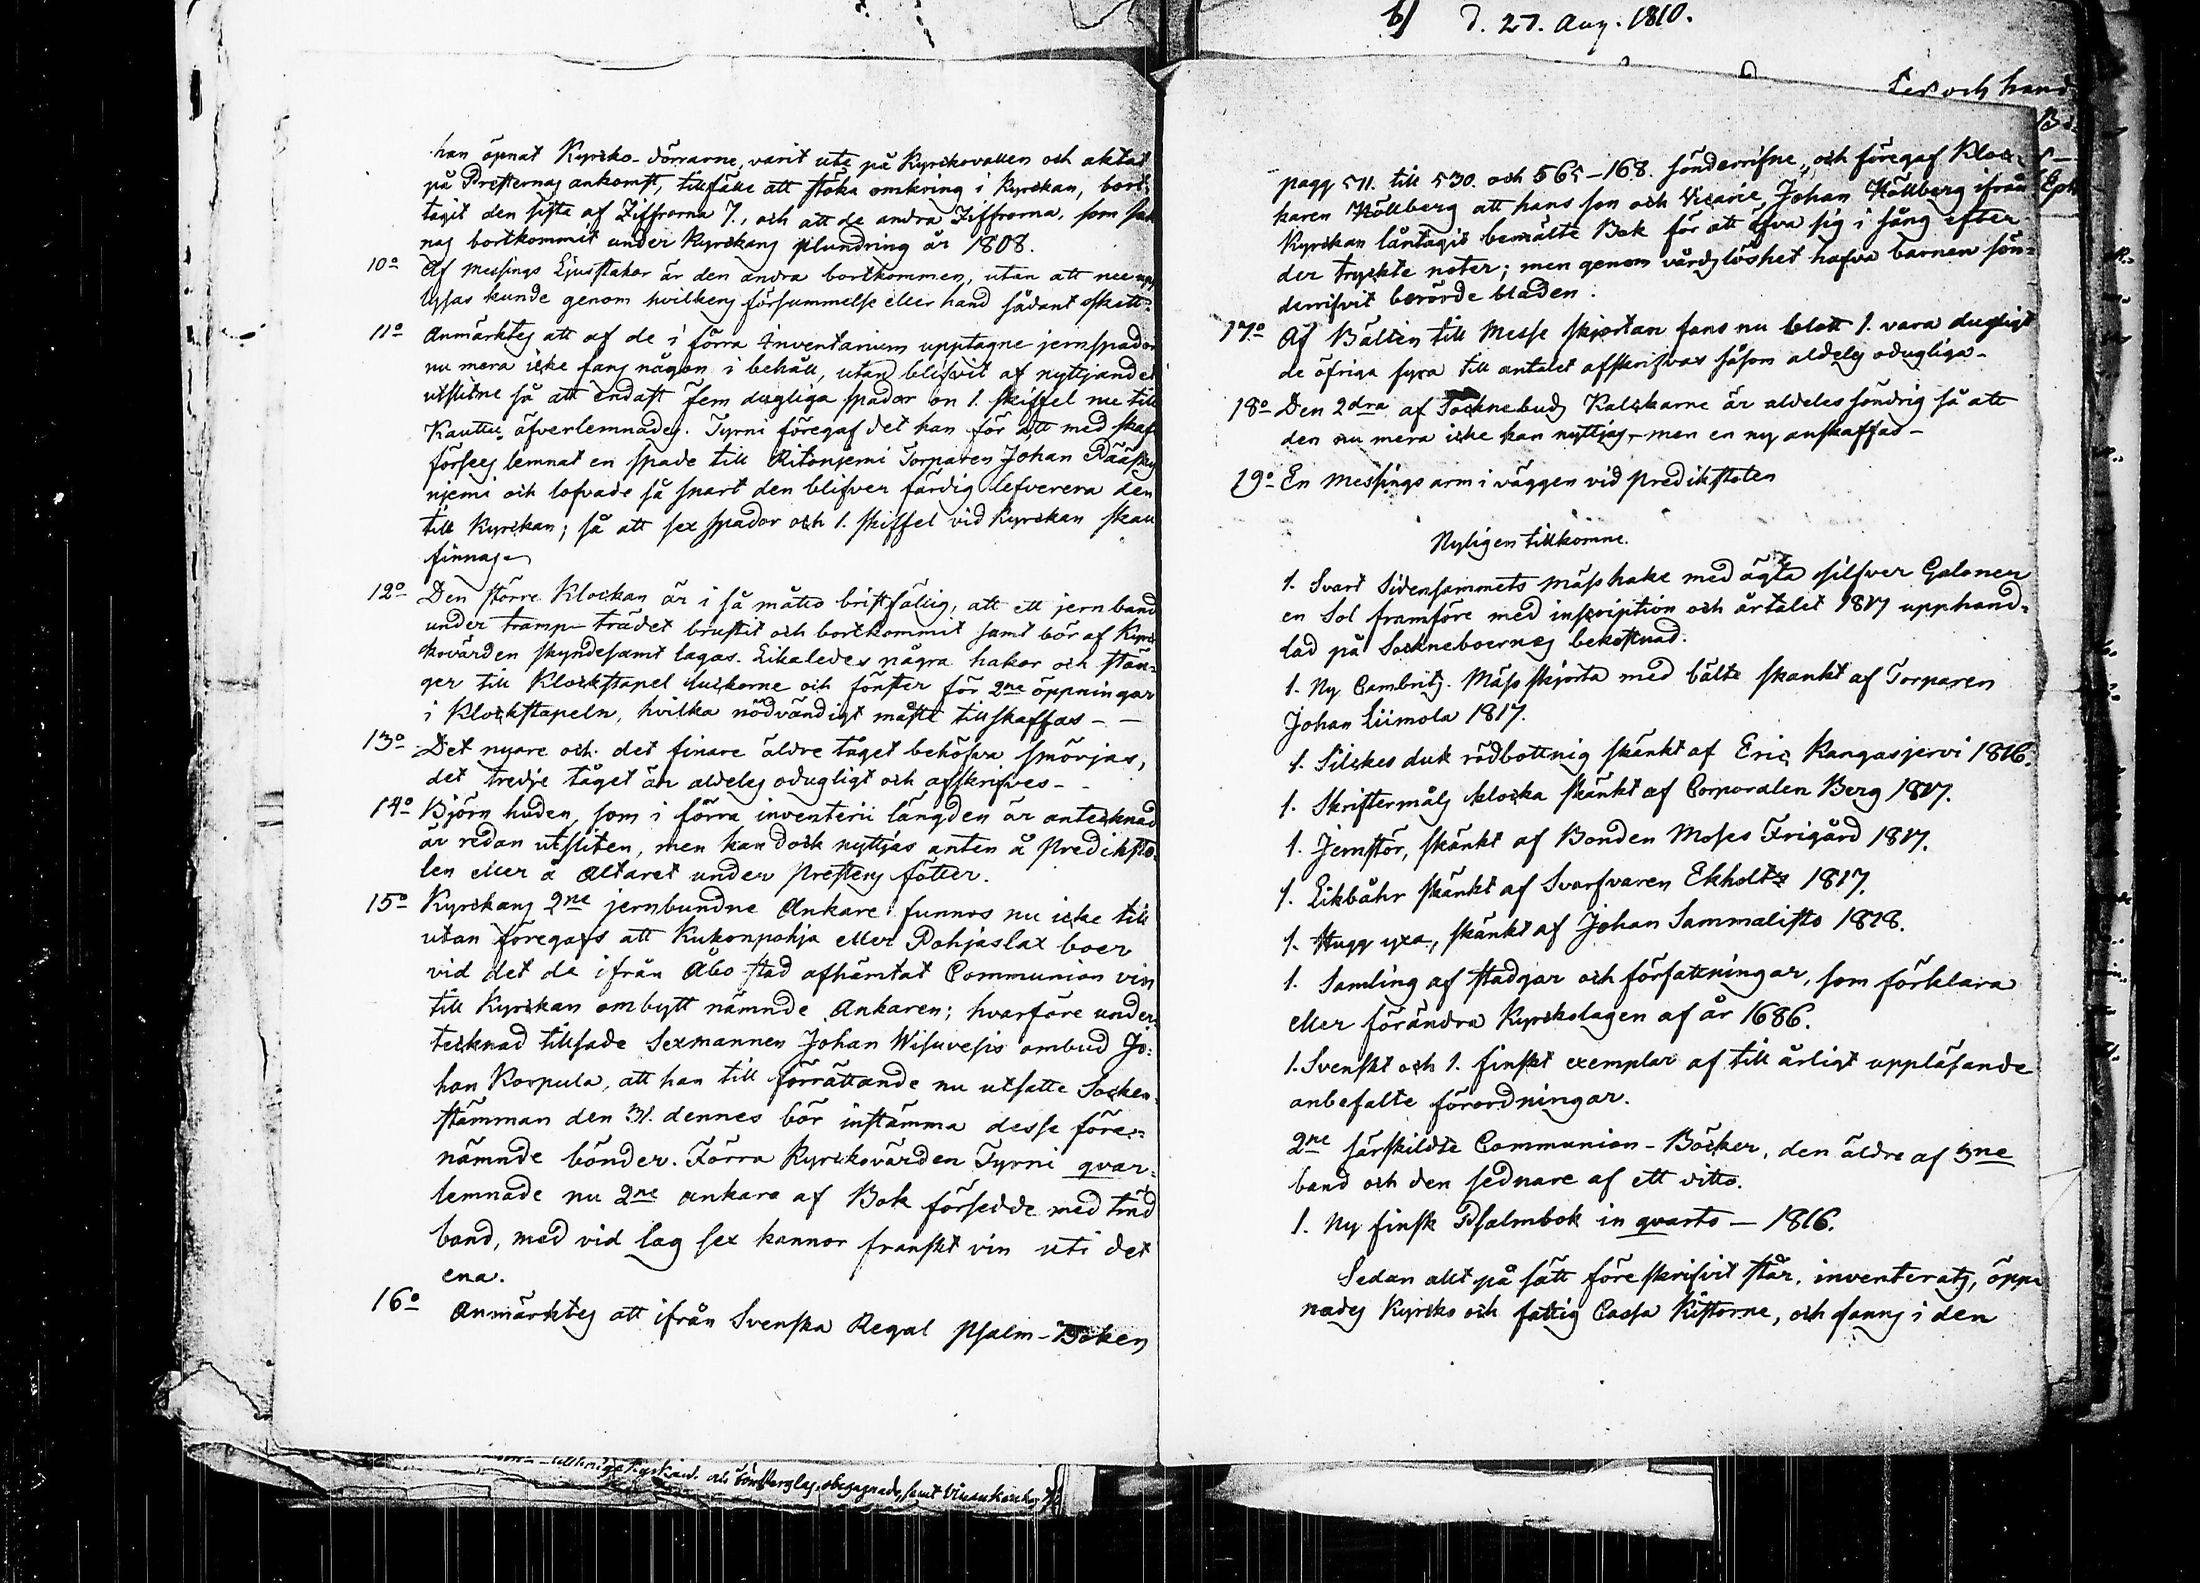 han öpnat Kyrcko-dörrarne, varit ute på Kyrckovallen och aktat
på Presternas ankomst, tillfälle att stöka omkring i Kyrckan, bort-
tagit den sista af Ziffrorna 7., och att de andra Ziffrorna, som sak
nas bortkommit under Kyrckans plundring år 1808.
10o Af Messings Ljusstakar är den andra bortkommen, utan att nu upp
lysas kunde genom hvilkens försummelse eller hand sådant skett.
11o Anmärktes att af de i förra Inventarium upptagne jernspador
nu mera icke fans någon i behåll, utan blifvit af nyttjandet
utslitne så att endast fem dugliga spador on 1. skiffel nu till
Kauttu öfverlemnades. Tyrni föregaf det han för att med skaft
förses lemnat en spade till Ritoniemi Torparen Johan Pääsky
njemi och lofvade så snart den blifver färdig lefverera den
till Kyrckan; så att sex spador och 1. skiffel vid Kyrckan skall
finnas.
12o Den större Klockan är i så måtto bristfällig, att ett jernband
under tramp-trädet brustit och bortkommit samt bör af Kyrc
kovärden skyndesamt lagas. Likaledes några hakar och stän-
ger till Klockstapel luckorne och fönster för 2ne öppningar
i Klockstapeln, hvilka nödvändigt måste tillskaffas - -
13o Det nyare och det finare äldre tåget behöfva smörjas,
det tredje tåget är aldeles odugligt och afskrifves -
14o Björn huden, som i förra inventerii längden är antecknad
är redan utsliten, men kan dock nyttjas anten å Prediksto-
len eller å Altaret under Prestens fötter.
15o Kyrckans 2ne jernbundne Ankare funnos nu icke till
utan föregafs att Kukonpohja eller Pohjaslax boer
vid det de ifrån Åbo stad afhämtat Communion vin
till Kyrckan ombytt nämnde Ankaren; hvarföre under-
tecknad tillsade Sexmannen Johan Wisuvesis ombud Jo-
han Korpula, att han till förrättande nu utsatte Socken-
stämman den 31. dennes bör instämma desse före-
nämnde bönder. Förra Kyrckovärden Tyrni qvar-
lemnade nu 2ne ankare af Bok försedde med tind
band, med vid lag sex kannor franskt vin uti det
ena.
16o Anmärktes att ifrån Svenska Regal Psalm-Boken
b) d. 27. Aug. 1810.
ler och hand
pagg 511. till 530. och 565-168. sönderrifne, och föregaf Kloc-
karen Höllberg att hans son och Vicarie Johan Höllberg ifrån
Kyrckan låntagit bemälte Bok för att öfva sig i sång efter
der tryckte noter; men genom vårdslöshet hafva barnen sön-
derrifvit berörde bladen.
17o Af Bälten till Messe skjortan fans nu blott 1. vara dugligt
de öfriga fyra till antalet afskrifvas såsom aldeles odugliga -
18o Den 2dra af Socknebuds Kalckarne är aldeles söndrig så att
den nu mera icke kan nyttjas, men en ny anskaffas -
19o En Messings arm i väggen vid Predikstolen
Nyligen tillkomne.
1. Svart Sidensammets Mässhake med ägta silfver Galoner
en Sol framföre med inscription och årtalet 1817 upphand-
lad på Sockneboernas bekostnad.
1. Ny Cambrits. Mäss skjorta med bälte skänkt af Torparen
Johan Liimola 1817.
1. Silckes duk rödbottnig skänkt af Eric Kangasjervi 1816.
1. Skriftermåls klocka skänkt af Corporalen Berg 1817.
1. Jernstör, skänkt af Bonden Moses Frigård 1817.
1. Likbåhr skänkt af Svarfvaren Ekholtz 1817.
1. Hugg yxa, skänkt af Johan Sammalisto 1818.
1. Samling af stadgar och författningar, som förklara
eller förändra Kyrckolagen af år 1686.
1. Svenskt och 1. finskt exemplar af till årligt uppläsande
anbefalte förordningar.
2ne särskildte Communion-Böcker, den äldre af 3ne
band och den sednare af ett ditto.
1. Ny finsk Psalmbok in qvarto - 1816.
Sedan allt på sätt föreskrifvit står, inventerats, öpp-
nades Kyrcko och fattig Cassa Kistorne, och fanns i den